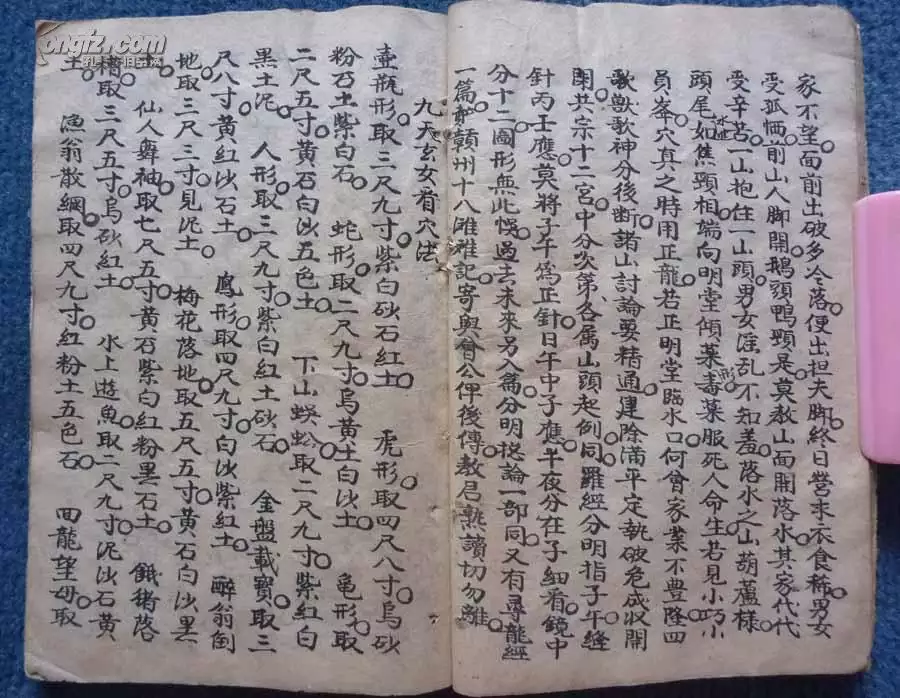 家不望面前出破多冷落便出担夫脚終日营求衣食稀男女
受孤恓前山人脚開鵝頭鴨頸是莫教山面開落水其家代代
受辛苦一山抱住一山頭男女淫乱不知羞落水之山葫蘆樣
頭尾如焦頸相端向明堂傾藥形壽藥服死人命生若見小巧小
員峯穴真之時用正龍若正明堂臨水口何曾家業不豊隆四
歌獸歌神分後断諸山討論要精通建除滿平定執破危成収開
閉共宗十二宮中分次第各属山頭起例同羅經分明指子午縫
針丙壬應莫將子午為正針日午中子應半夜分在子細看鏡中
分十二圖形無此悮過去未来另入篇分明捴論一部同又有尋龍經
一篇贛州十八灘灘記寄與曾公俾後傳教君熟讀切勿離
九天玄女看穴法
壷瓶形取三尺九寸紫白砂石紅土 虎形取四尺八寸烏砂
粉石土紫白石 蛇形取二尺九寸烏黄土白沙土 龜形取
二尺五寸黄石白沙五色土 下山蜈蚣取二尺九寸紫紅白
黒土泥 人形取三尺九寸紫白紅土砂石 金盤載寳取三
尺八寸黄紅沙石土 鳳形取四尺九寸白沙紫紅土 醉翁倒
地取三尺三寸見泥土 梅花落地取五尺五寸黄石白沙黒
土 仙人舞袖取七尺五寸黄石紫白紅粉黒石土 餓猪落
槽取三尺五寸烏砂紅土 水上遊魚取二尺九寸泥沙石黄
土 漁翁散網取四尺九寸紅粉土五色石 回龍望母取